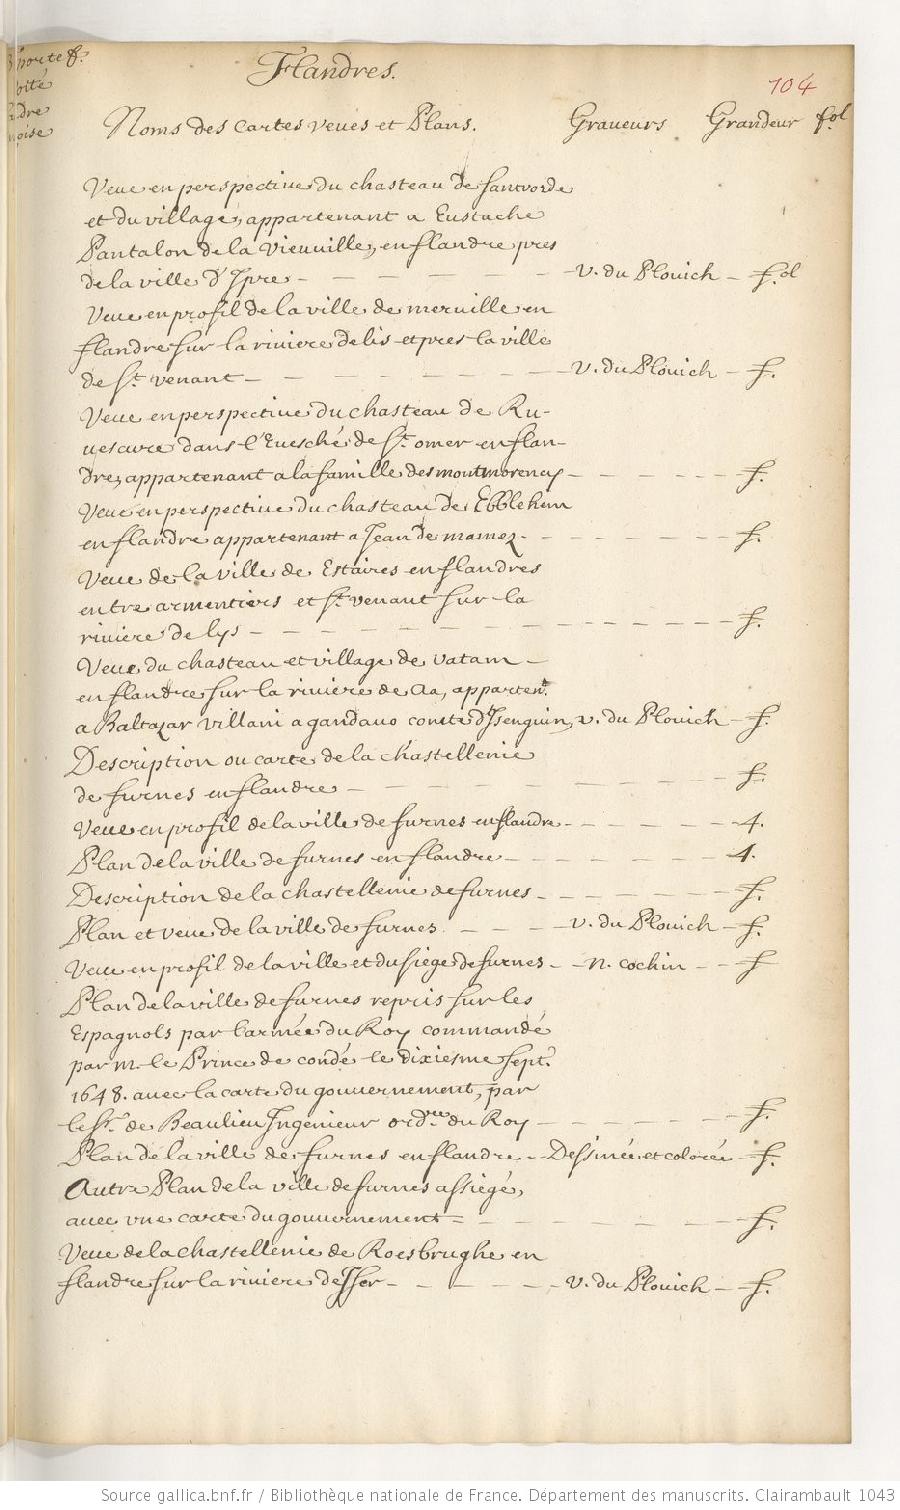 Flandres.
104
Noms des cartes veues et Plans. Graveurs Grandeur fol
Veue en perspective du chasteau de santvorde
et du village, appartenant a Eustache
Pantalon de la Vieuville, en flandre pres
de la ville d'Ypre - v. du Plouich - f.ol
Veue en profil de la ville de merville en
flandre sur la riviere de lis et pres la ville
de St. venant - v. du Plouich - f.
Veue en perspective du chasteau de Ru-
vescure dans l'Evesché de St. omer en flan-
dre, appartenant a la famille des montmorency - f.
Veue en perspective du chasteau de Ebblehem
en flandre appartenant a Jean de mamez - f.
Veue de la ville de Estaires en flandres
entre armentiers et St. venant sur la
riviere de lys - f.
Veue du chasteau et village de vatam -
en flandre sur la riviere de Aa, apparten.t
a Baltazar villani a gandavo comte d'Isenguin, v. du Plouich - f.
Description ou carte de la chastellenie
de furnes en flandre - f.
Veue en profil de la ville de furnes en flandre - 4.
Plan de la ville de furnes en flandre - 4.
Description de la chastellenie de furnes - f.
Plan et veue de la ville de furnes - v. du Plouich - f.
Veue en profil de la ville et du siege de furnes - n. cochin - f
Plan de la ville de furnes repris sur les
Espagnols par l'armée du Roy commandé
par m. le Prince de condé le dixiesme sept.
1648. avec la carte du gouvernement, par
le Sr. de Beaulieu Ingenieur ord.re du Roy - f.
Plan de la ville de furnes en flandre - Dessinée et colorée - f.
Autre Plan de la ville de furnes assiegé,
avec une carte du gouvernement - f.
Veue de la chastellenie de Roesbrughe en
flandre sur la riviere d'Isser - v. du Plouich - f.
Source gallica.bnf.fr / Bibliothèque nationale de France. Département des manuscrits. Clairambault 1043